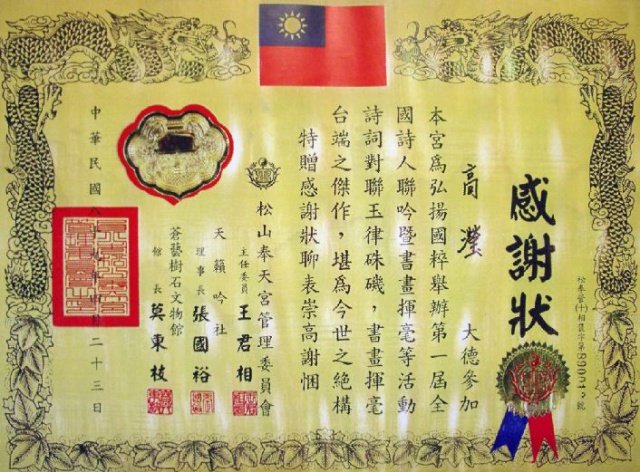 感謝狀
松奉管(十)相農字第
號
高瀅 大德參加
本宮爲弘揚國粹舉辦第一屆全
國詩人聯吟暨書畫揮毫等活動
詩詞對聯玉律硃磯，書畫揮毫
台端之傑作，堪爲今世之絕構
特贈感謝狀聊表崇高謝悃
松山奉天宮管理委員會
主任委員 王君相
天籟吟社
理事長 張國裕
蒼藝樹石文物館
館長 莫東枝
中華民國八十九年 月二十三日